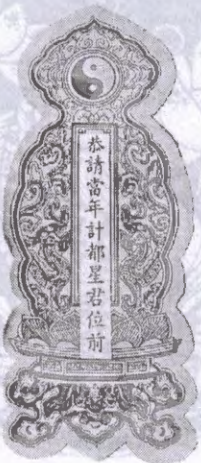 恭請當年計都星君位前